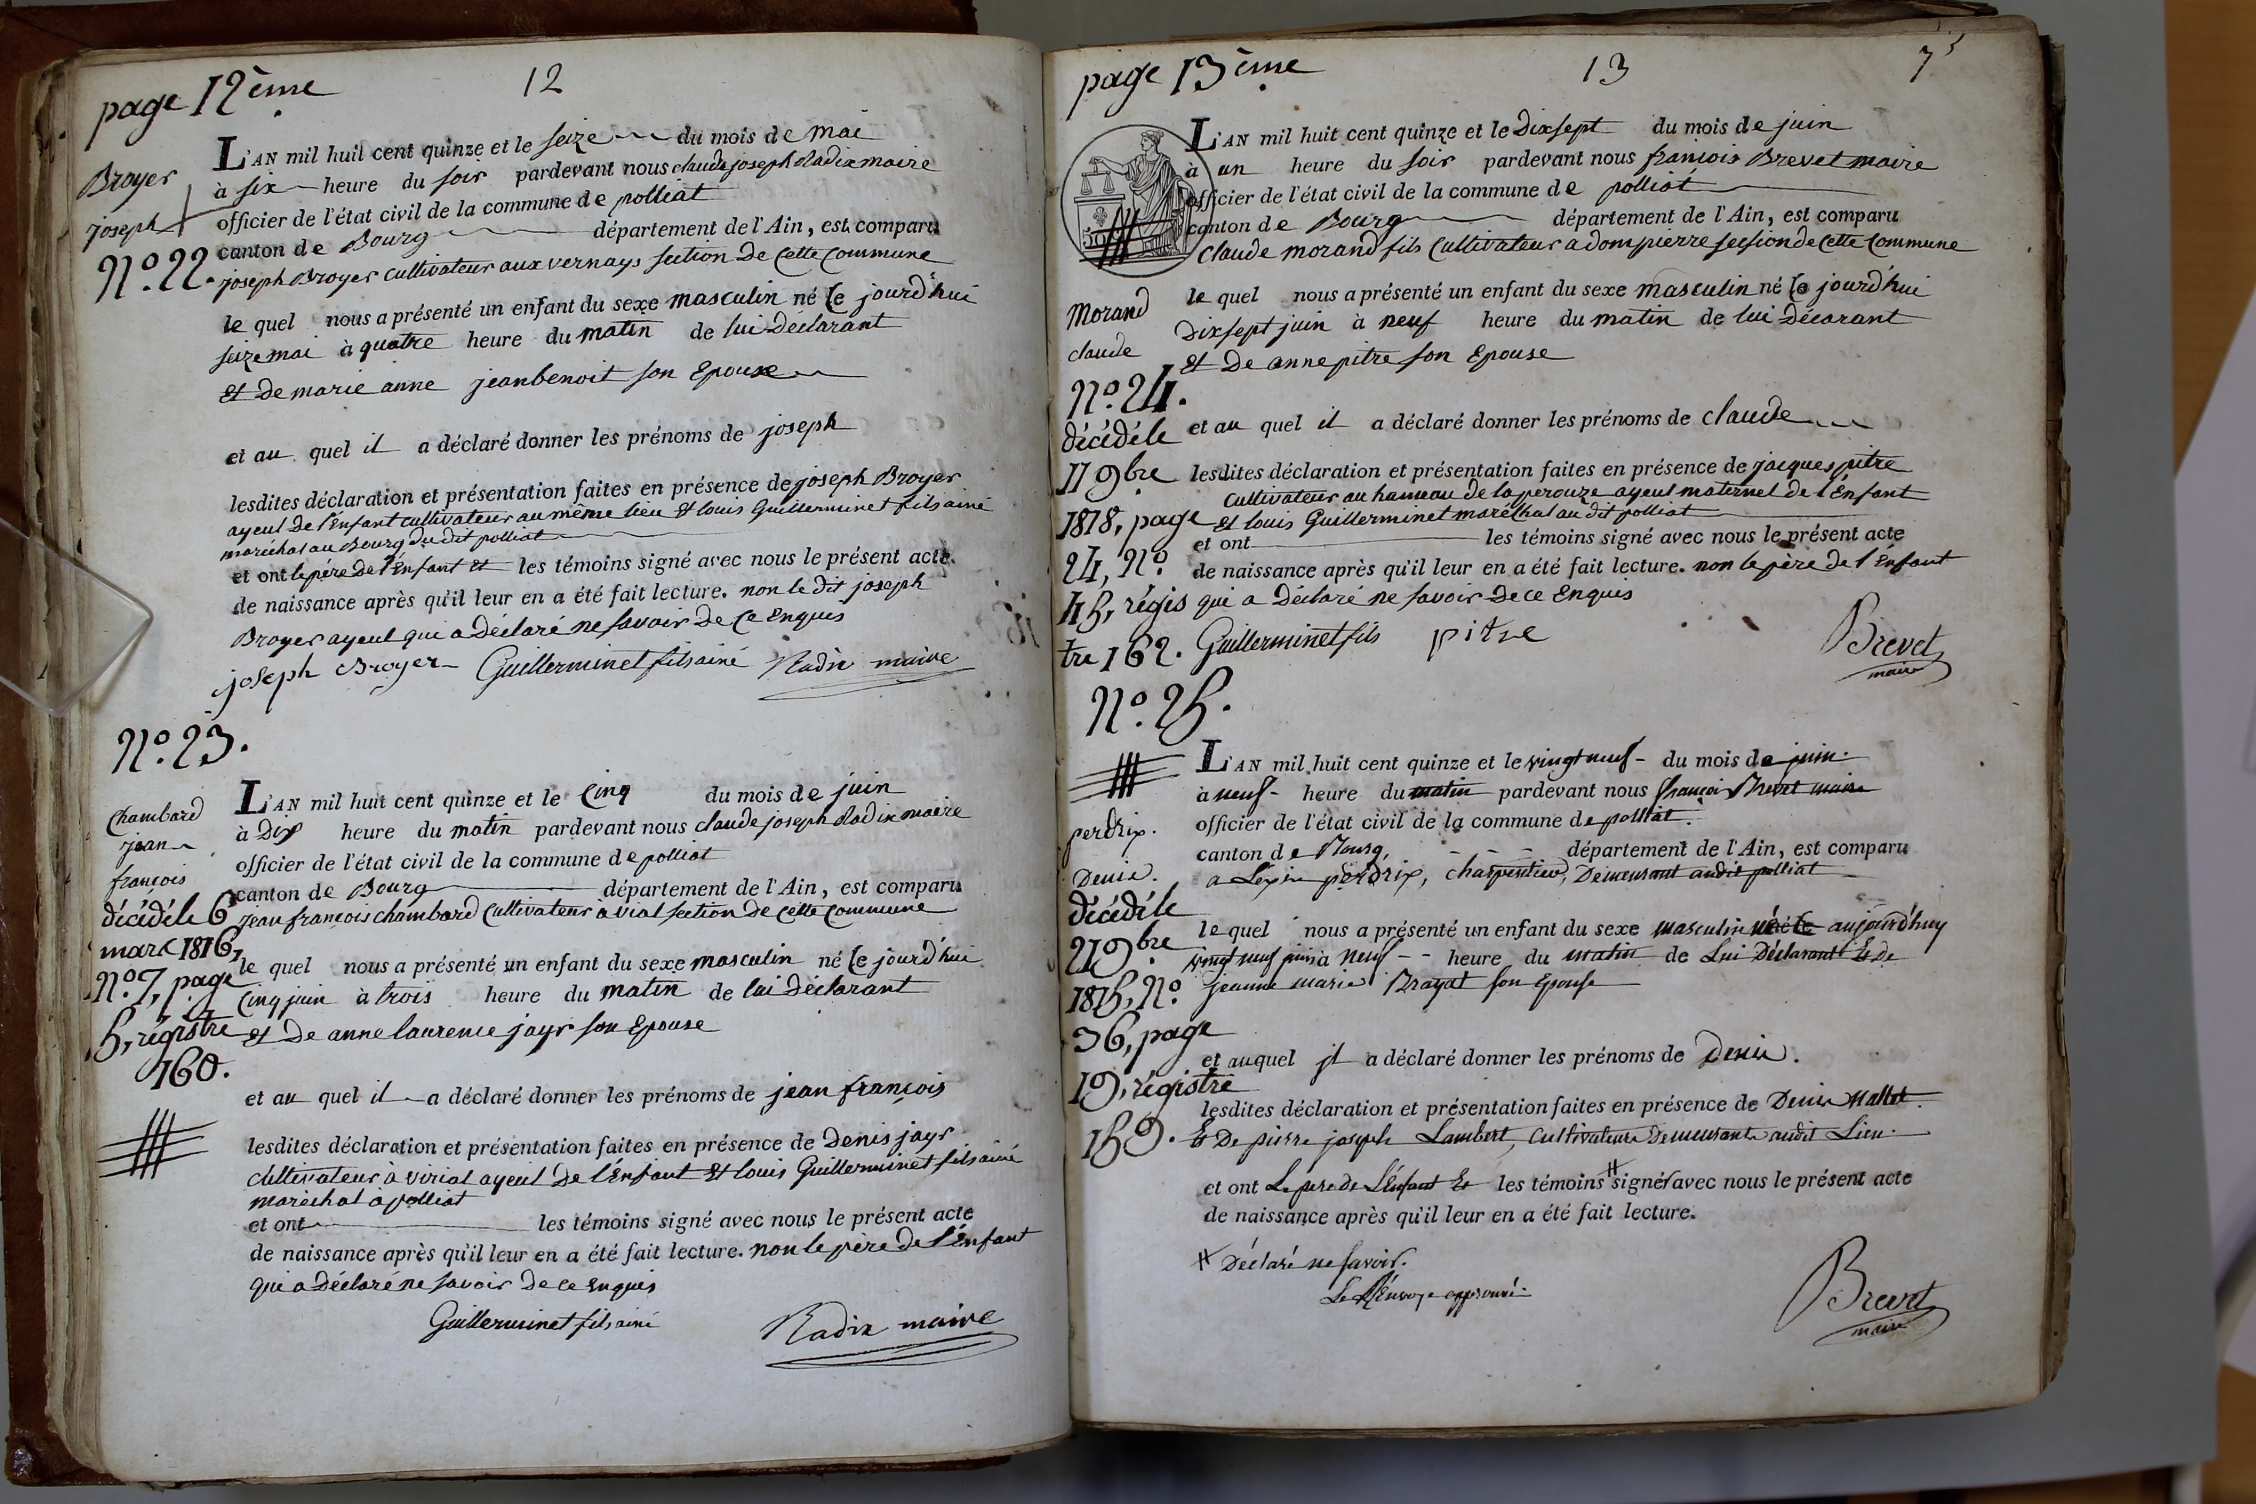 page 12ème
12
Broyer
joseph
N.º 22.
L'AN mil huit cent quinze et le seize du mois de mai
à six heure du soir pardevant nous claude joseph Radix maire
officier de l'état civil de la commune de polliat
canton de Bourg département de l'Ain, est comparu
joseph Broyer cultivateur aux vernays section de cette commune
le quel nous a présenté un enfant du sexe masculin né ce jourd'hui
seize mai à quatre heure du matin de lui déclarant
et de marie anne jeanbenoit son Epouse
et au quel il a déclaré donner les prénoms de joseph
lesdites déclaration et présentation faites en présence de joseph Broyer
ayeul de l'Enfant cultivateur au même lieu et louis Guillerminet fils ainé
maréchal au Bourg du dit polliat
et ont le père de l'Enfant et les témoins signé avec nous le présent acte
de naissance après qu'il leur en a été fait lecture. non le dit joseph
Broyer ayeul qui a déclaré ne savoir de ce enquis
joseph Broyer Guillerminet fils ainé Radix maire
N.º 23.
Chambard
jean
françois
décédé le 6
mars 1816,
N.º 7, page
5, régistre
160.
L'AN mil huit cent quinze et le cinq du mois de juin
à Dix heure du matin pardevant nous claude joseph Radix maire
officier de l'état civil de la commune de polliat
canton de Bourg département de l'Ain, est comparu
jean françois chambard cultivateur à vial section de cette commune
le quel nous a présenté un enfant du sexe masculin né ce jourd'hui
cinq juin à trois heure du matin de lui déclarant
et de anne laurence jayr son Epouse
et au quel il a déclaré donner les prénoms de jean françois
lesdites déclaration et présentation faites en présence de Denis jayr
cultivateur à viriat ayeul de l'Enfant et louis Guillerminet fils ainé
maréchal à polliat
et ont les témoins signé avec nous le présent acte
de naissance après qu'il leur en a été fait lecture. non le père de l'Enfant
qui a déclaré ne savoir de ce enquis
Guillerminet fils ainé Radix maire
page 13ème
13
7
L'AN mil huit cent quinze et le Dixsept du mois de juin
à un heure du soir pardevant nous françois Brevet maire
officier de l'état civil de la commune de polliat
canton de Bourg département de l'Ain, est comparu
claude morand fils cultivateur a dompierre section de cette commune
Morand
claude
N.º 24.
décédé le
11 9bre
1818, page
24, N.º
45, régis
tre 162.
le quel nous a présenté un enfant du sexe masculin né ce jourd'hui
Dixsept juin à neuf heure du matin de lui décarant
et de anne pitre son Epouse
et au quel il a déclaré donner les prénoms de claude
lesdites déclaration et présentation faites en présence de jacques pitre
cultivateur au hameau de la perouze ayeul maternel de l'Enfant
et louis Guillerminet maréchal au dit polliat
et ont les témoins signé avec nous le présent acte
de naissance après qu'il leur en a été fait lecture. non le père de l'Enfant
qui a déclaré ne savoir de ce enquis
Guillerminet fils pitre Brevet
maire
N.º 25.
perdrix.
Denis.
décédé le
21 9bre
1815, N.º
36, page
19, régistre
159.
L'AN mil huit cent quinze et le vingt neuf du mois de juin
à neuf heure du matin pardevant nous françois Brevet maire
officier de l'état civil de la commune de polliat
canton de Bourg, département de l'Ain, est comparu
perdrix, charpentier, Demeurant audit polliat
le quel nous a présenté un enfant du sexe masculin né ce aujourd'huy
vingt neuf juin à neuf heure du matin de Lui Déclarant Et de
jeanne marie Brayat son Epouse
et auquel jl a déclaré donner les prénoms de Denis.
lesdites déclaration et présentation faites en présence de Denis Mallet
Et De pierre joseph Lambert, Cultivateurs Demeurants audit Lieu.
et ont Le pere de L'Enfant Et les témoins # signér avec nous le présent acte
de naissance après qu'il leur en a été fait lecture.
# Déclaré ne savoir.
Le Renvoye approuvé.
Brevet
maire